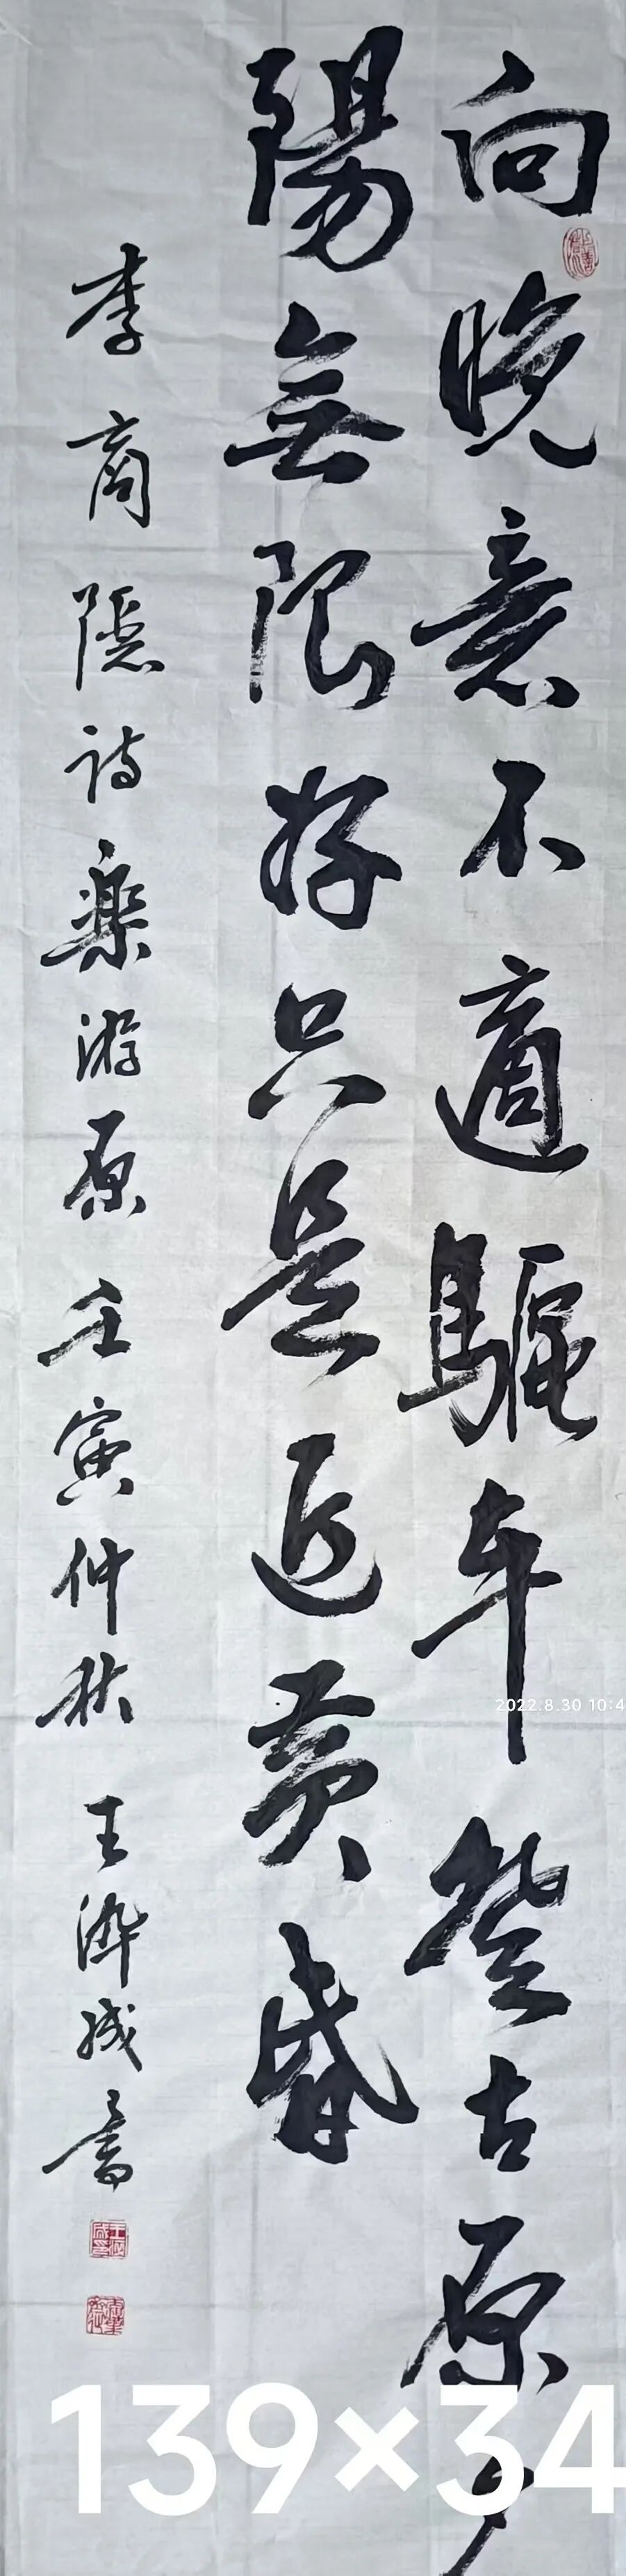 向晚意不適驅車登古原夕
陽無限好只是近黄昏
李商隱詩樂游原壬寅仲秋王
2022.8.30 10:4
139×34